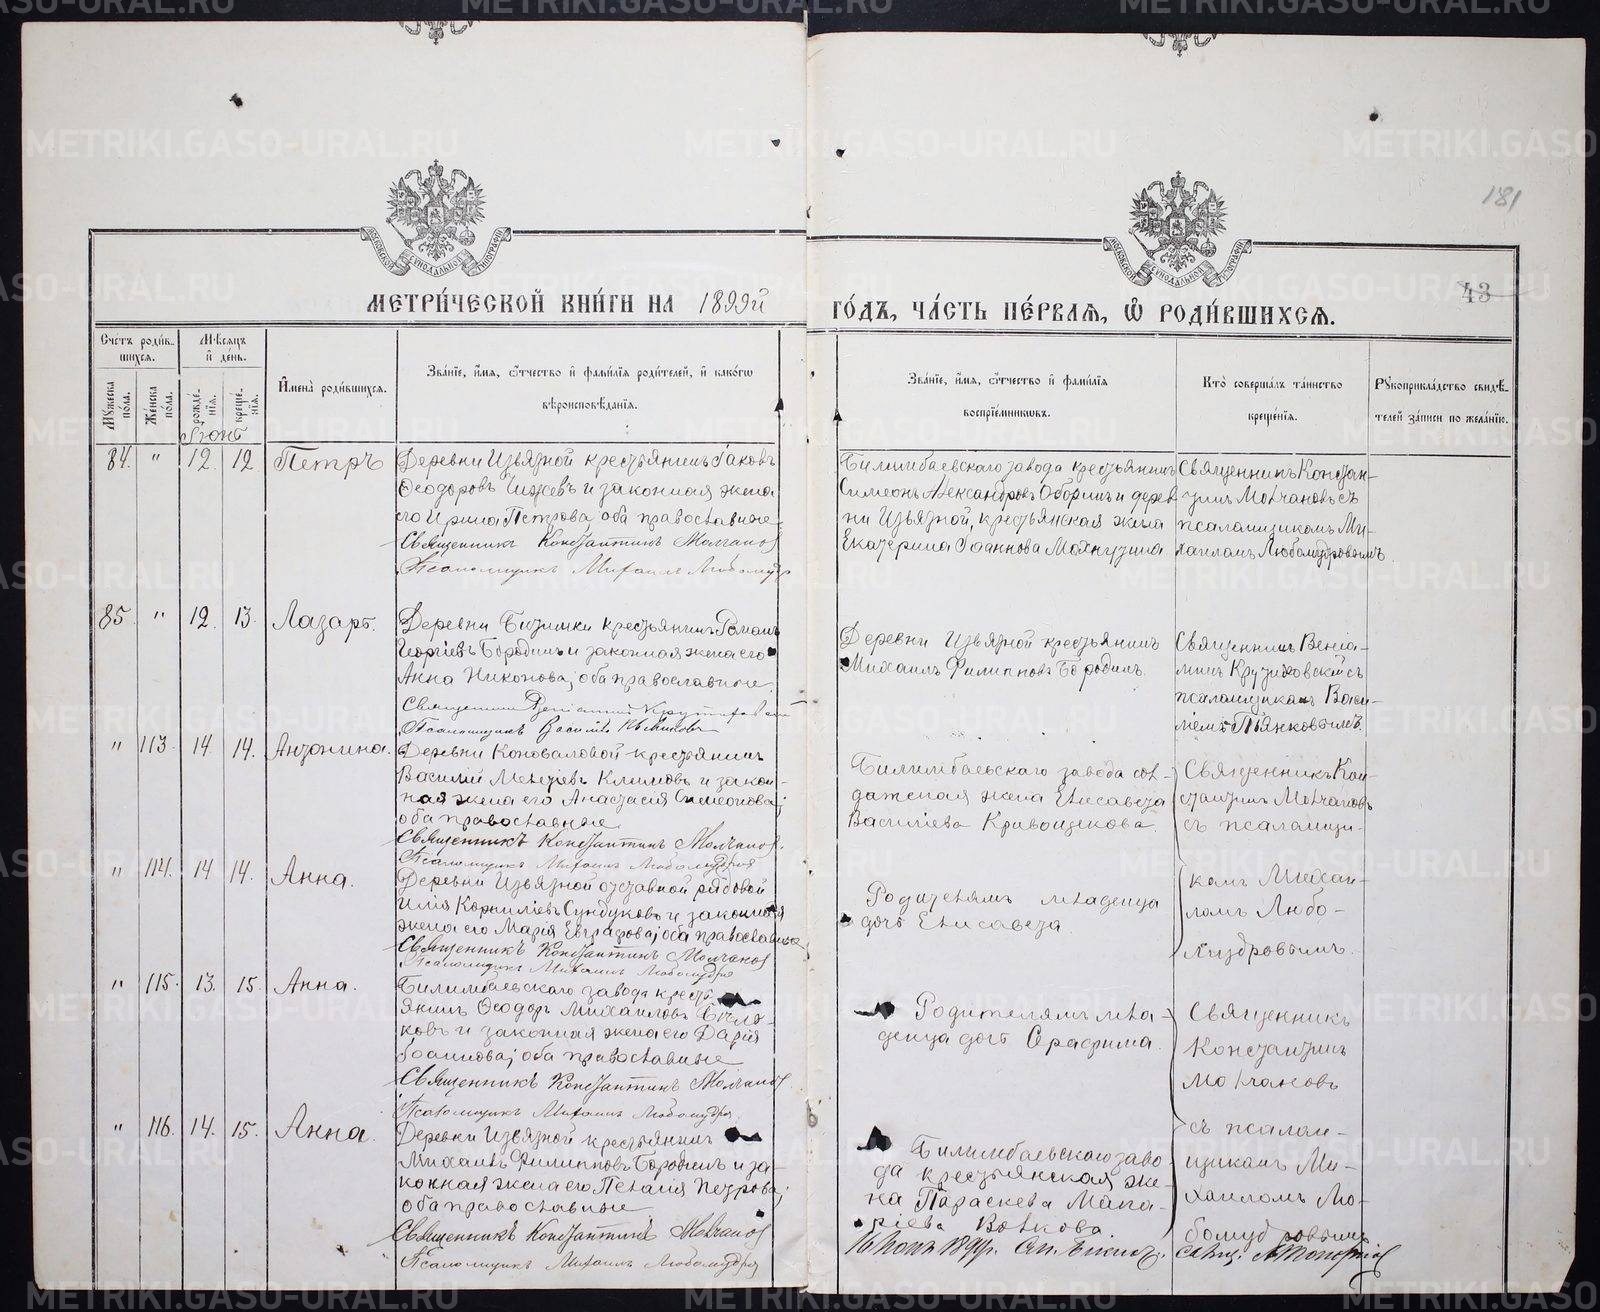 181
43
МЕТРИ́ЧЕСКОЙ КНИ́ГИ НА 1899й
ГО́ДЪ, ЧА́СТЬ ПЕ́РВАѦ, Ѡ РОДИ́ВШИХСѦ.
Счетъ роди́вшихсѧ.
Мꙋжеска по́ла.
Же́нска по́ла.
Мѣ́сѧцъ и҆ де́нь.
рожде́нїѧ.
креще́нїѧ.
И҆мена̀ роди́вшихсѧ.
Зва́нїе, и҆́мѧ, ѻ҆́тчество и҆ фамилїѧ роди́телей, и҆ како́гѡ
вѣроисповѣ́данїѧ.
Зва́нїе, и҆́мѧ, ѻ҆́тчество и҆ фами́лїѧ
воспрїе́мникѡвъ.
Кто̀ соверша́лъ та́инство
креще́нїѧ.
Рꙋкоприкла́дство свидѣ́телей за́писи по жела́нїю.
84. " 12 12 Петръ
Деревни Извязной крестьянинъ Іаковъ
Ѳеодоровъ и законная жена
его Ирина Петрова, оба православные.
Священникъ Константинъ Молчановъ
Псаломщикъ Михаилъ Любомудр
Билимбаевскаго завода крестьянинъ
Симеонъ Александровъ Оборинъ и дерев
ни Извязной, крестьянская жена
Екатерина Іоаннова Махнутина
Священникъ Констан-
тинъ Молчановъ съ
псаломщикомъ Ми-
хаиломъ Любомудровымъ
85. " 12. 13. Лазарь.
Деревни Битимки крестьянинъ Романъ
Георгіевъ Бородинъ и законная жена его
Анна Никонова, оба православные.
Священникъ Веніаминъ
Псаломщикъ Василій
Деревни Извязной крестьянинъ
Михаилъ Филипповъ Бородинъ.
Священникъ Веніа-
минъ съ
псаломщикомъ Васи-
ліемъ Пьянковымъ.
" 113. 14. 14. Антонина.
Деревни Коноваловой крестьянинъ
Василій Климовъ и закон-
ная жена его Анастасія Симеонова;
оба православные
Священникъ Константинъ Молчановъ.
Псаломщикъ Михаилъ Любомудров
Билимбаевскаго завода сол-
датская жена Елисавета
Василіева Кривощекова.
Священникъ Кон-
стантинъ Молчановъ
съ псаломщи-
" 114. 14 14. Анна.
Деревни Извязной отставной рядовой
Илія Корниліевъ Сундуковъ и законная
жена его Марія Евграфова; оба православные
Священникъ Константинъ Молчановъ
Псаломщикъ Михаилъ Любомудров
Родителямъ младенца
дочь Елисавета.
комъ Михаи-
ломъ Любо-
мудровымъ.
" 115. 13. 15. Анна.
Билимбаевскаго завода кресть
янинъ Ѳеодоръ Михаиловъ
и законная жена его Дарія
Іоаннова; оба православные
Священникъ Константинъ Молчановъ
Псаломщикъ Михаилъ Любомудров
Родителямъ мла-
денца дочь Серафима.
Священникъ
Константинъ
Молчановъ
" 116. 14. 15. Анна.
Деревни Извязной крестьянинъ
Михаилъ Филипповъ Бородинъ и за-
конная жена его Пелагія Петрова;
оба православные
Священникъ Константинъ Молчановъ
Псаломщикъ Михаилъ Любомудров
Билимбаевскаго заво-
да крестьянская же-
на Параскева Мака-
ріева Волкова
съ псалом-
щикомъ Ми-
хаиломъ Лю-
бомудровымъ